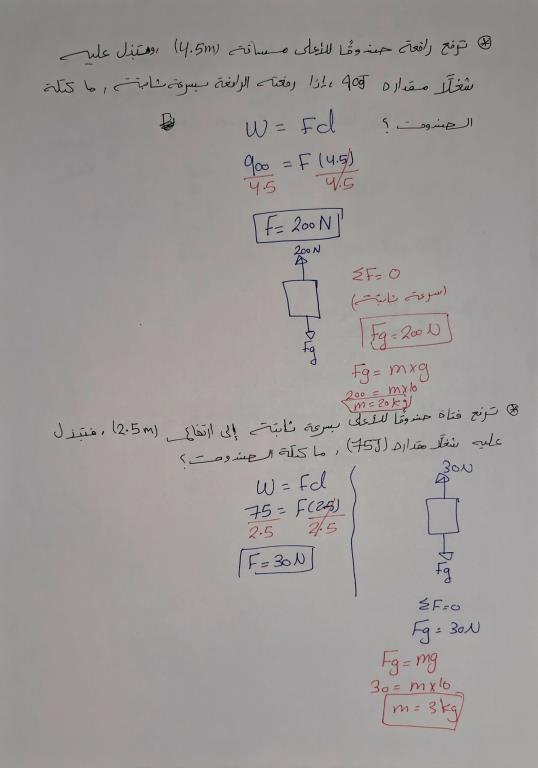 * ترفع رافعة صندوقًا للأعلى مسافة (4.5m) ، وتبذل عليه
شغلًا مقداره 90J ، إذا رفعته الرافعة بسرعة ثابتة ، ما كتلة
الصندوق ؟
W = Fd
900/4.5 = F(4.5)/4.5
F = 200N
200N
Fg
ΣF = 0
(سرعة ثابتة)
Fg = 200N
Fg = m×g
200 = m×10
m = 20kg
* ترفع فتاة صندوقًا للأعلى بسرعة ثابتة إلى ارتفاع (2.5m) ، فتبذل
عليه شغلًا مقداره (75J) ، ما كتلة الصندوق ؟
W = Fd
75/2.5 = F(2.5)/2.5
F = 30N
30N
Fg
ΣF = 0
Fg = 30N
Fg = mg
30 = m×10
m = 3kg